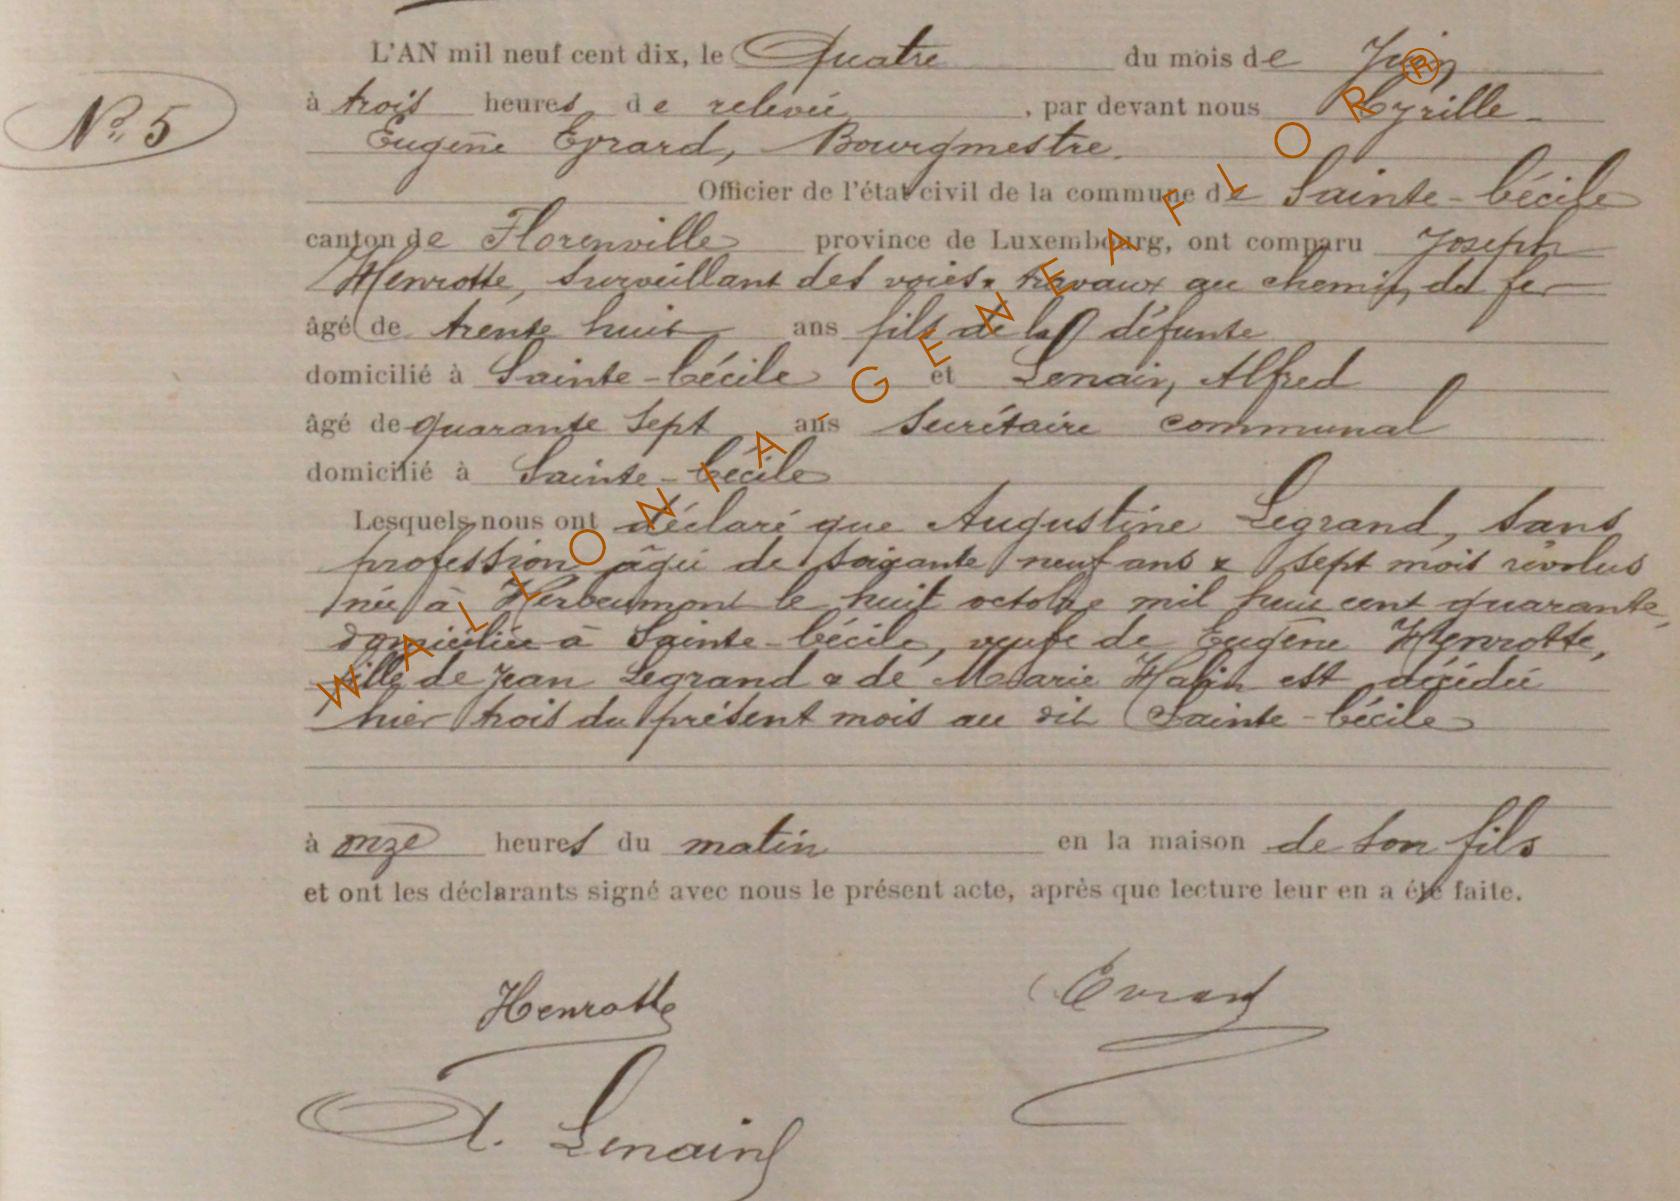 L'AN mil neuf cent dix, le Quatre du mois de Juin
N° 5
à trois heures de relevée, par devant nous Cyrille
Eugène Evrard, Bourgmestre.
Officier de l'état civil de la commune de Sainte-Cécile
canton de Florenville province de Luxembourg, ont comparu Joseph
Henrotte, surveillant des voies & travaux au chemin de fer
âgé de trente huit ans fils de la défunte
domicilié à Sainte-Cécile et Lenain, Alfred
âgé de quarante sept ans secrétaire communal
domicilié à Sainte-Cécile
Lesquels nous ont déclaré que Augustine Legrand, sans
profession âgée de soixante neuf ans & sept mois révolus
née à Herbeumont le huit octobre mil huit cent quarante,
domiciliée à Sainte-Cécile, veuve de Eugène Henrotte,
fille de Jean Legrand & de Marie Halin est décédée
hier trois du présent mois au dit Sainte-Cécile
à onze heures du matin en la maison de son fils
et ont les déclarants signé avec nous le présent acte, après que lecture leur en a été faite.
Henrotte Evrard
A. Lenain
WALLONIA-GENEAFLOR®